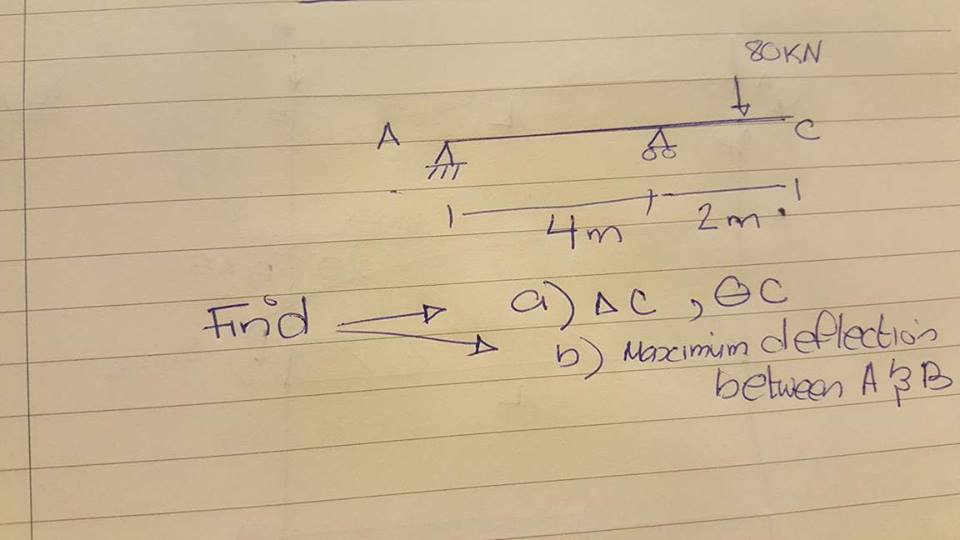 80KN
A
C
4m
2m.
Find
a) ΔC, ΘC
b) Maximum deflection
between A & B